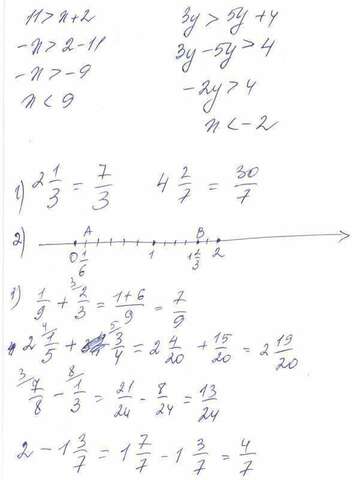 11 > x + 2
-x > 2 - 11
-x > -9
x < 9
3y > 5y + 4
3y - 5y > 4
-2y > 4
x < -2
1) 2 1/3 = 7/3   4 2/7 = 30/7
2) A B
0 1/6 1 1 2/3 2
1/9 + 2/3 (3) = (1+6)/9 = 7/9
2 1/5 (4) + 3/4 (5) = 2 4/20 + 15/20 = 2 19/20
7/8 (3) - 1/3 (8) = 21/24 - 8/24 = 13/24
2 - 1 3/7 = 1 7/7 - 1 3/7 = 4/7